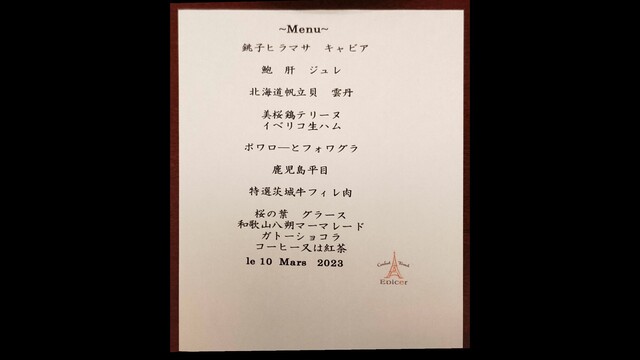 ~Menu~
銚子ヒラマサ　キャビア
鮑　肝　ジュレ
北海道帆立貝　雲丹
美桜鶏テリーヌ
イベリコ生ハム
ポワロ―とフォワグラ
鹿児島平目
特選茨城牛フィレ肉
桜の葉　グラース
和歌山八朔マーマレード
ガトーショコラ
コーヒー又は紅茶
le 10 Mars 2023
Epicer